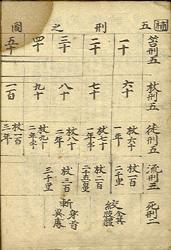 補五刑之圖
笞刑五
一十
二十
三十
四十
五十
杖刑五
六十
七十
八十
九十
一百
徒刑五
杖六十
一年
杖七十
一年半
杖八十
二年
杖九十
二年半
杖一百
三年
流刑三
杖一百
二千里
杖一百
二千五百里
杖一百
三千里
死刑二
絞 全其肢體
斬 身首異處